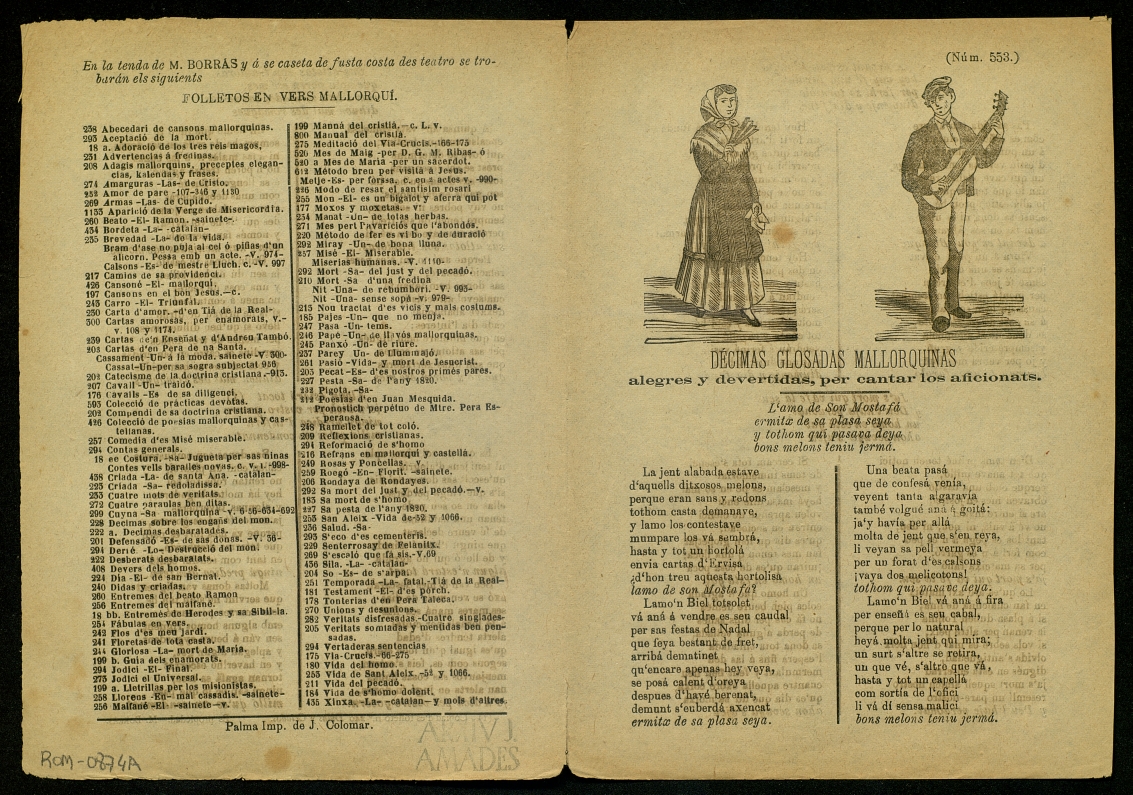 En la tenda de M. BORRÁS y á se caseta de fusta costa des teatro se tro-
barán els siguients
FOLLETOS EN VERS MALLORQUÍ.
238 Abecedari de cansons mallorquinas.
293 Aceptació de la mort.
18 a. Adoració de los tres réis magos,
231 Advertencias á fredinas.
208 Adagis mallorquins, preceptes elegan-
cias, kalendas y frases.
274 Amarguras -Las- de Cristo.
232 Amor de pare -107-346 y 1130
269 Armas -Las- de Cupido.
1135 Aparició de la Verge de Misericordia.
260 Beato -El- Ramon. -sainete-.
434 Bordeta -La- -catalan-
235 Brevedad -La- de la vida.
Bram d'ase no puja al cel ó piñas d'un
alicorn. Pessa emb un acte. -V. 974-
Calsons -Es- de mestre Lluch. c. -V. 997
217 Camios de sa providenci.
426 Cansoné -El- mallorquí.
197 Cansons en el bon Jesus.—c.
243 Carro -El- Triunfal.
230 Carta d'amor. -d'en Tiá de la Real-
300 Cartas amorosas, per enamorats, v.-
v. 108 y 1174.
239 Cartas de'n Enseñat y d'Andreu Tambó.
203 Cartas d'en Pera de na Santa.
Cassament -Un- á la moda. sainete -V. 300-
Cassat -Un-per sa sogra subjectat 956
202 Catecisme de la doctrina cristiana.-913.
207 Cavall -Un- traidó.
176 Cavalls -Es- de sa diligenci.
593 Colecció de prácticas devotas.
202 Compendi de sa doctrina cristiana.
426 Colecció de poesias mallorquinas y cas-
tellanas.
257 Comedia d'es Misé miserable.
294 Contas generals.
18 ee Costura. -Sa- Jugueta per sas ninas
Contes vells baralles novas. c. v. i. -998-
438 Criada -La- de santa Ana. -catalan-
223 Criada -Sa- redoladissa.
233 Cuatre mots de veritats.
272 Cuatre paraulas ben ditas.
299 Cuyna -Sa- mallorquina -v. 6-56-634-692
228 Decimas sobre los engañs del mon.
222 a. Decimas desbaratades.
201 Defensadó -Es- de sas donas. -V. 36-
294 Derré. -Lo- Destrucció del mon.
222 Desberats desbaratats.
408 Devers dels homos.
224 Dia -El- de san Bernat.
240 Didas y criadas.
260 Entremes del beato Ramon
256 Entremes del malfané.
18 bb. Entremés de Herodes y sa Sibil-la.
254 Fábulas en vers.
242 Flos d'es meu jardi.
241 Floretas de tota casta.
244 Gloriosa -La- mort de Maria.
199 b. Guia dels enamorats.
294 Jodici -El- Final.
273 Jodici el Universal.
199 a. Lletrillas per los misionistas.
258 Llorens -En- mal cassadis. -sainete-
256 Malfané -El- -sainete—v.
199 Manná del cristiá.—c. L. v.
800 Manual del cristiá.
275 Meditació del Via-Crucis.-166-175
520 Mes de Maig -per D. G. M. Ribas- ó
520 a Mes de Maria -per un sacerdot.
612 Método breu per visitá á Jesus.
Metje -Es- per forssa. c. en 2 actes v. -990-
226 Modo de resar el santísim rosari
255 Mon -El- es un bigalot y aferra qui pot
177 Moxos y moxetas. v.
234 Manat -Un- de totas herbas.
271 Mes pert l'avariciós que l'abondós.
220 Método de fer es vi bo y de duració
292 Miray -Un- de bona lluna.
257 Misé -El- Miserable.
Miserias humanas. -V. 1110-
292 Mort -Sa- del just y del pecadó.
210 Mort -Sa d'una fredina
Nit -Una- de rebumbori. -V. 995-
Nit -Una- sense sopá -v. 979-
213 Nou tractat d'es vicis y mals costums.
185 Pajes -Un- que no menja.
247 Pasa -Un- tems.
246 Papé -Un- de llavós mallorquinas.
245 Panxó -Un- de riure.
237 Parey Un- de Llummajó.
261 Pasió -Vida- y mort de Jesucrist.
203 Pecat -Es- d'es nostros primés pares.
227 Pesta -Sa- de l'any 1820.
232 Pigota, -Sa-
212 Poesias d'en Juan Mesquida.
Pronostich perpétuo de Mtre. Pera Es-
peransa.
248 Ramellet de tot coló.
209 Reflexions cristianas.
294 Reformació de s'homo
216 Refrans en mallorquí y castellá.
249 Rosas y Poncellas. v.
259 Roegó -En- Florit. -sainete.
206 Rondaya de Rondayes.
292 Sa mort del just y del pecadó.—v.
183 Sa mort de s'homo
227 Sa pesta de l'any 1820.
253 San Aleix -Vida de-52 y 1066.
236 Salud. -Sa-
293 S'eco d'es cementeris.
229 Senterrosay de Felanitx.
269 S'escaló que fá sis.-V.69
436 Sila. -La- -catalan-
204 So -Es- de s'arpa.
251 Temporada -La- fatal.-Tiá de la Real-
181 Testament -El- d'es porch.
178 Tonterias d'en Pera Taleca.
270 Unions y desunions.
282 Veritats disfresadas.-Cuatre singlades-
205 Veritats somiadas y mentidas ben pen-
sadas.
294 Vertaderas sentencias
175 Via-Crucis.-66-275
180 Vida del homo.
253 Vida de Sant Aleix. -52 y 1066.
211 Vida del pecadó.
184 Vida de s'homo dolent.
435 Xinxa. -La- -catalan—y mols d'altres
Palma Imp. de J. Colomar.
ARXIU J.
AMADES
ROM-0874A
(Núm. 553.)
DÉCIMAS GLOSADAS MALLORQUINAS
alegres y devertidas, per cantar los aficionats.
L'amo de Son Mostafá
ermitx de sa plasa seya
y tothom qui pasava deya
bons melons teniu jermá.
La jent alabada estave
d'aquells ditxosos melons,
perque eran sans y redons
tothom casta demanave,
y lamo los contestave
mumpare los vá sembrá,
hasta y tot un hortolá
envia cartas d'Ervisa
¿d'hon treu aquesta hortolisa
lamo de son Mostafa?
Lamo'n Biel totsolet
vá aná á vendre es seu caudal
per sas festas de Nadal
que feya bestant de fret,
arribá dematinet
qu'encare apenas hey veya,
se posá calent d'oreya
despues d'havé berenat,
demunt s'euberdá axencat
ermitx de sa plasa seya.
Una beata pasá
que de confesá venía,
veyent tanta algaravía
també volgué aná á goitá:
ja'y havía per allá
molta de jent que s'en reya,
li veyan sa pell vermeya
per un forat d'es calsons
¡vaya dos melicotons!
tothom qui pasave deya.
Lamo'n Biel vá aná á fira
per enseñá es seu cabal,
perque per lo natural
heyá molta jent qui mira;
un surt s'altre se retira,
un que vé, s'altre que vá,
hasta y tot un capellá
com sortía de l'ofici
li vá dí sensa malici
bons melons teniu jermá.